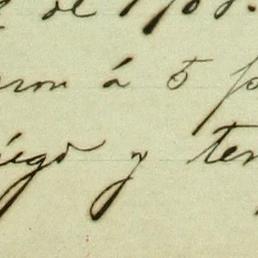 de 1908.
ron á 5 p
iego y ten